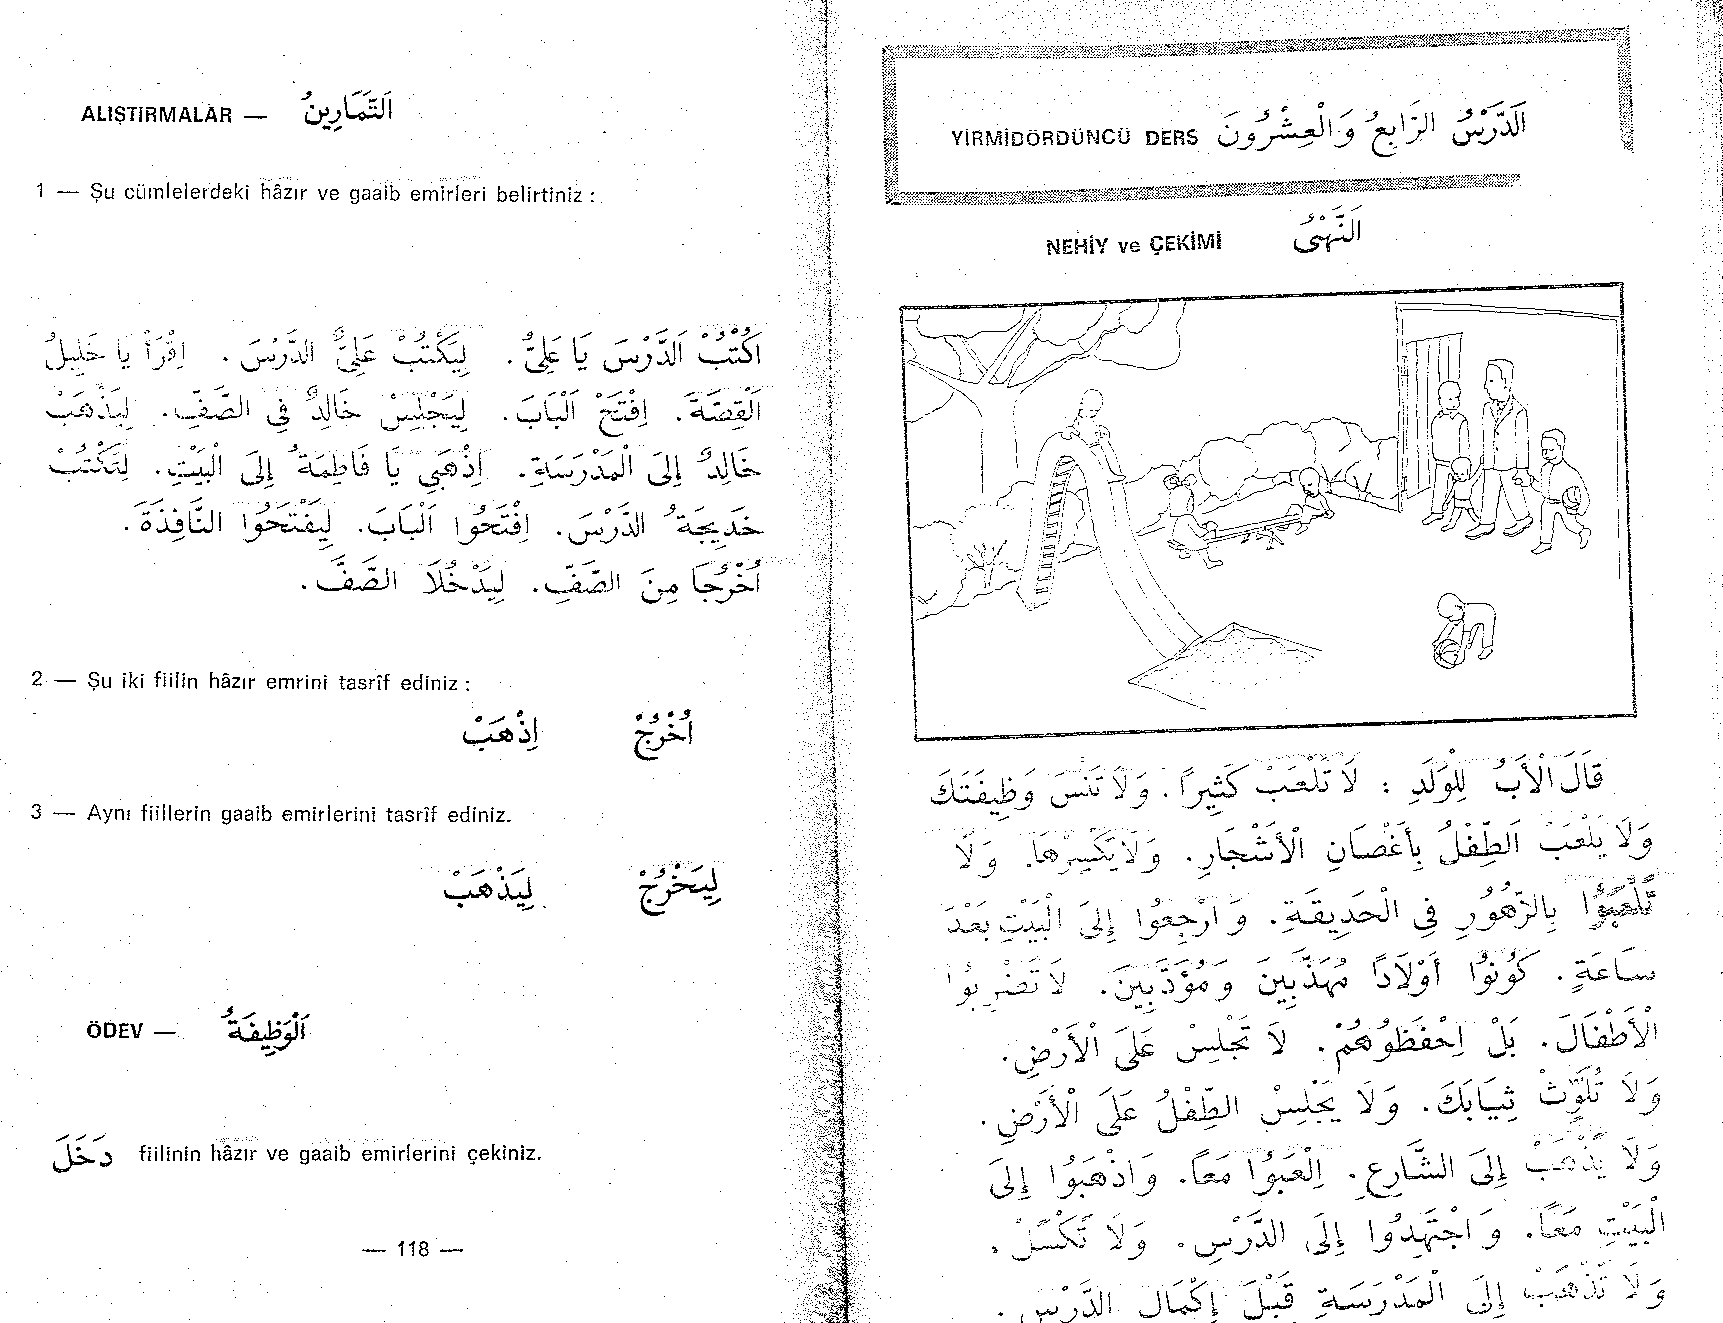 ALIŞTIRMALAR — اَلتَّمَارِينُ
1 — Şu cümlelerdeki hâzır ve gaaib emirleri belirtiniz :
اُكْتُبْ اَلدَّرْسَ يَا عَلِيُّ . لِيَكْتُبْ عَلِيٌّ الدَّرْسَ . اِقْرَأْ يَا خَلِيلُ
اَلْقِصَّةَ . اِفْتَحْ اَلْبَابَ . لِيَجْلِسْ خَالِدٌ فِي الصَّفِّ . لِيَذْهَبْ
خَالِدٌ إِلَى الْمَدْرَسَةِ . اِذْهَبِي يَا فَاطِمَةُ إِلَى الْبَيْتِ . لِتَكْتُبْ
خَدِيجَةُ الدَّرْسَ . اِفْتَحُوا اَلْبَابَ . لِيَفْتَحُوا النَّافِذَةَ .
اُخْرُجَا مِنَ الصَّفِّ . لِيَدْخُلَا الصَّفَّ .
2 — Şu iki fiilin hâzır emrini tasrîf ediniz :
اُخْرُجْ اِذْهَبْ
3 — Aynı fiillerin gaaib emirlerini tasrîf ediniz.
لِيَخْرُجْ لِيَذْهَبْ
ÖDEV — اَلْوَظِيفَةُ
دَخَلَ fiilinin hâzır ve gaaib emirlerini çekiniz.
— 118 —
YİRMİDÖRDÜNCÜ DERS اَلدَّرْسُ الرَّابِعُ وَالْعِشْرُونَ
NEHİY ve ÇEKİMİ اَلنَّهْىُ
قَالَ الْأَبُ لِلْوَلَدِ : لَا تَلْعَبْ كَثِيراً . وَلَا تَنْسَ وَظِيفَتَكَ
وَلَا يَلْعَبْ اَلطِّفْلُ بِأَغْصَانِ الْأَشْجَارِ . وَلَا يَكْسِرْهَا . وَلَا
تَلْعَبُوا بِالزُّهُورِ فِي الْحَدِيقَةِ . وَارْجِعُوا إِلَى الْبَيْتِ بَعْدَ
سَاعَةٍ . كُونُوا أَوْلَادًا مُهَذَّبِينَ وَمُؤَدَّبِينَ . لَا تَضْرِبُوا
الْأَطْفَالَ . بَلْ اِحْفَظُوهُمْ . لَا تَجْلِسْ عَلَى الْأَرْضِ .
وَلَا تُلَوِّثْ ثِيَابَكَ . وَلَا يَجْلِسْ الطِّفْلُ عَلَى الْأَرْضِ .
وَلَا يَذْهَبْ إِلَى الشَّارِعِ . اِلْعَبُوا مَعًا . وَاذْهَبُوا إِلَى
الْبَيْتِ مَعًا . وَاجْتَهِدُوا إِلَى الدَّرْسِ . وَلَا تَكْسَلْ .
وَلَا تَذْهَبْ إِلَى الْمَدْرَسَةِ قَبْلَ إِكْمَالِ الدَّرْسِ .